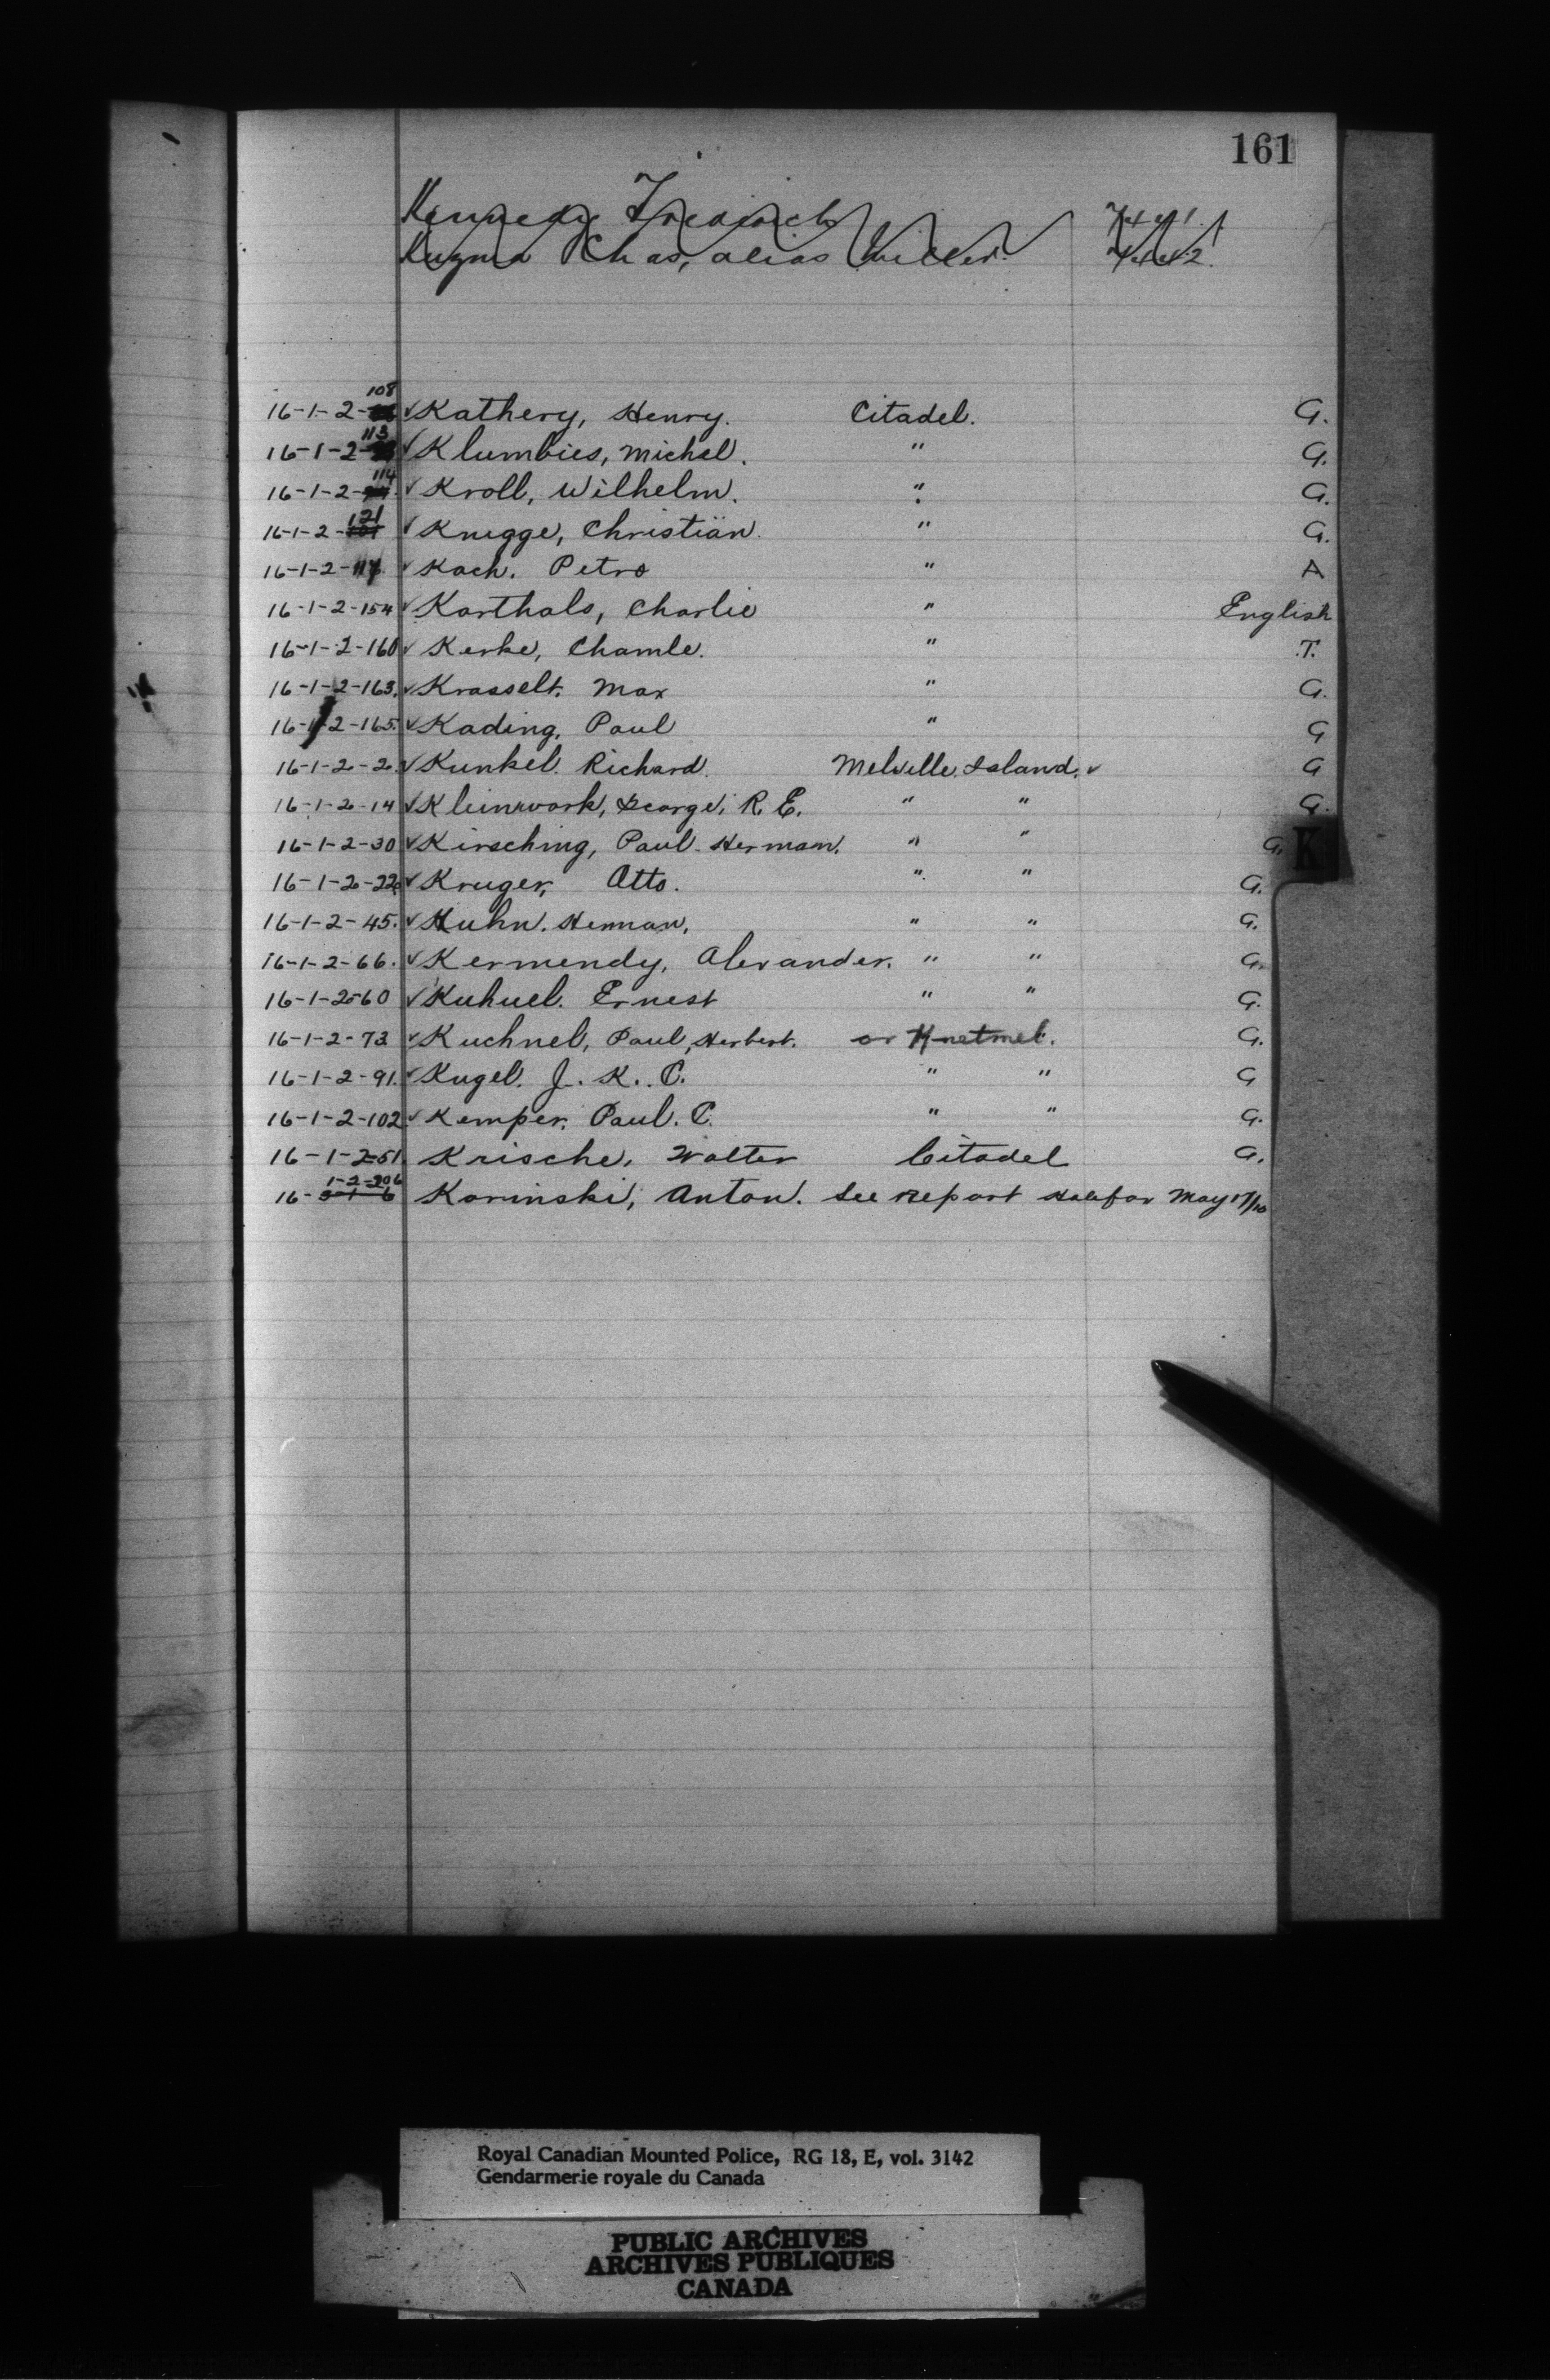 161
Kennedy Fredrick
Kuzma Chas, alias Miller.
108
16-1-2- ✓ Kathery, Henry. Citadel. G.
113
16-1-2- ✓ Klumbies, Michel. " G.
114
16-1-2- ✓ Kroll, Wilhelm. " G.
121
16-1-2-101 ✓ Knegge, Christian. " G.
16-1-2-117 ✓ Koch. Petro " A
16-1-2-154 ✓ Korthals, Charlie " English
16-1-2-160 ✓ Kerke, Chamle. " T.
16-1-2-163. ✓ Krasselt. Max " G.
16-1-2-165. ✓ Kading, Paul " G
16-1-2-2. ✓ Kunkel. Richard. Melville Island. ✓ G
16-1-2-14 ✓ Kleinwork, George, R. E. " " G.
16-1-2-30 ✓ Kirsching, Paul Herman. " " G. K
16-1-2-22. ✓ Kruger, Otto. " " G.
16-1-2-45. ✓ Kuhn. Herman, " " G.
16-1-2-66. ✓ Kermendy, Alexander. " " G.
16-1-2-60 ✓ Kuhuel. Ernest " " G.
16-1-2-73 ✓ Kuchnel, Paul, Herbert. or Knetmel. G.
16-1-2-91. ✓ Kugel. J. K. C. " " G
16-1-2-102 ✓ Kemper. Paul. C. " " G.
16-1-2-51. Krische, Walter Citadel G.
1-2-206
16- Korinski, Anton. See Report Halifax May 17/10
Royal Canadian Mounted Police, RG 18, E, vol. 3142
Gendarmerie royale du Canada
PUBLIC ARCHIVES
ARCHIVES PUBLIQUES
CANADA